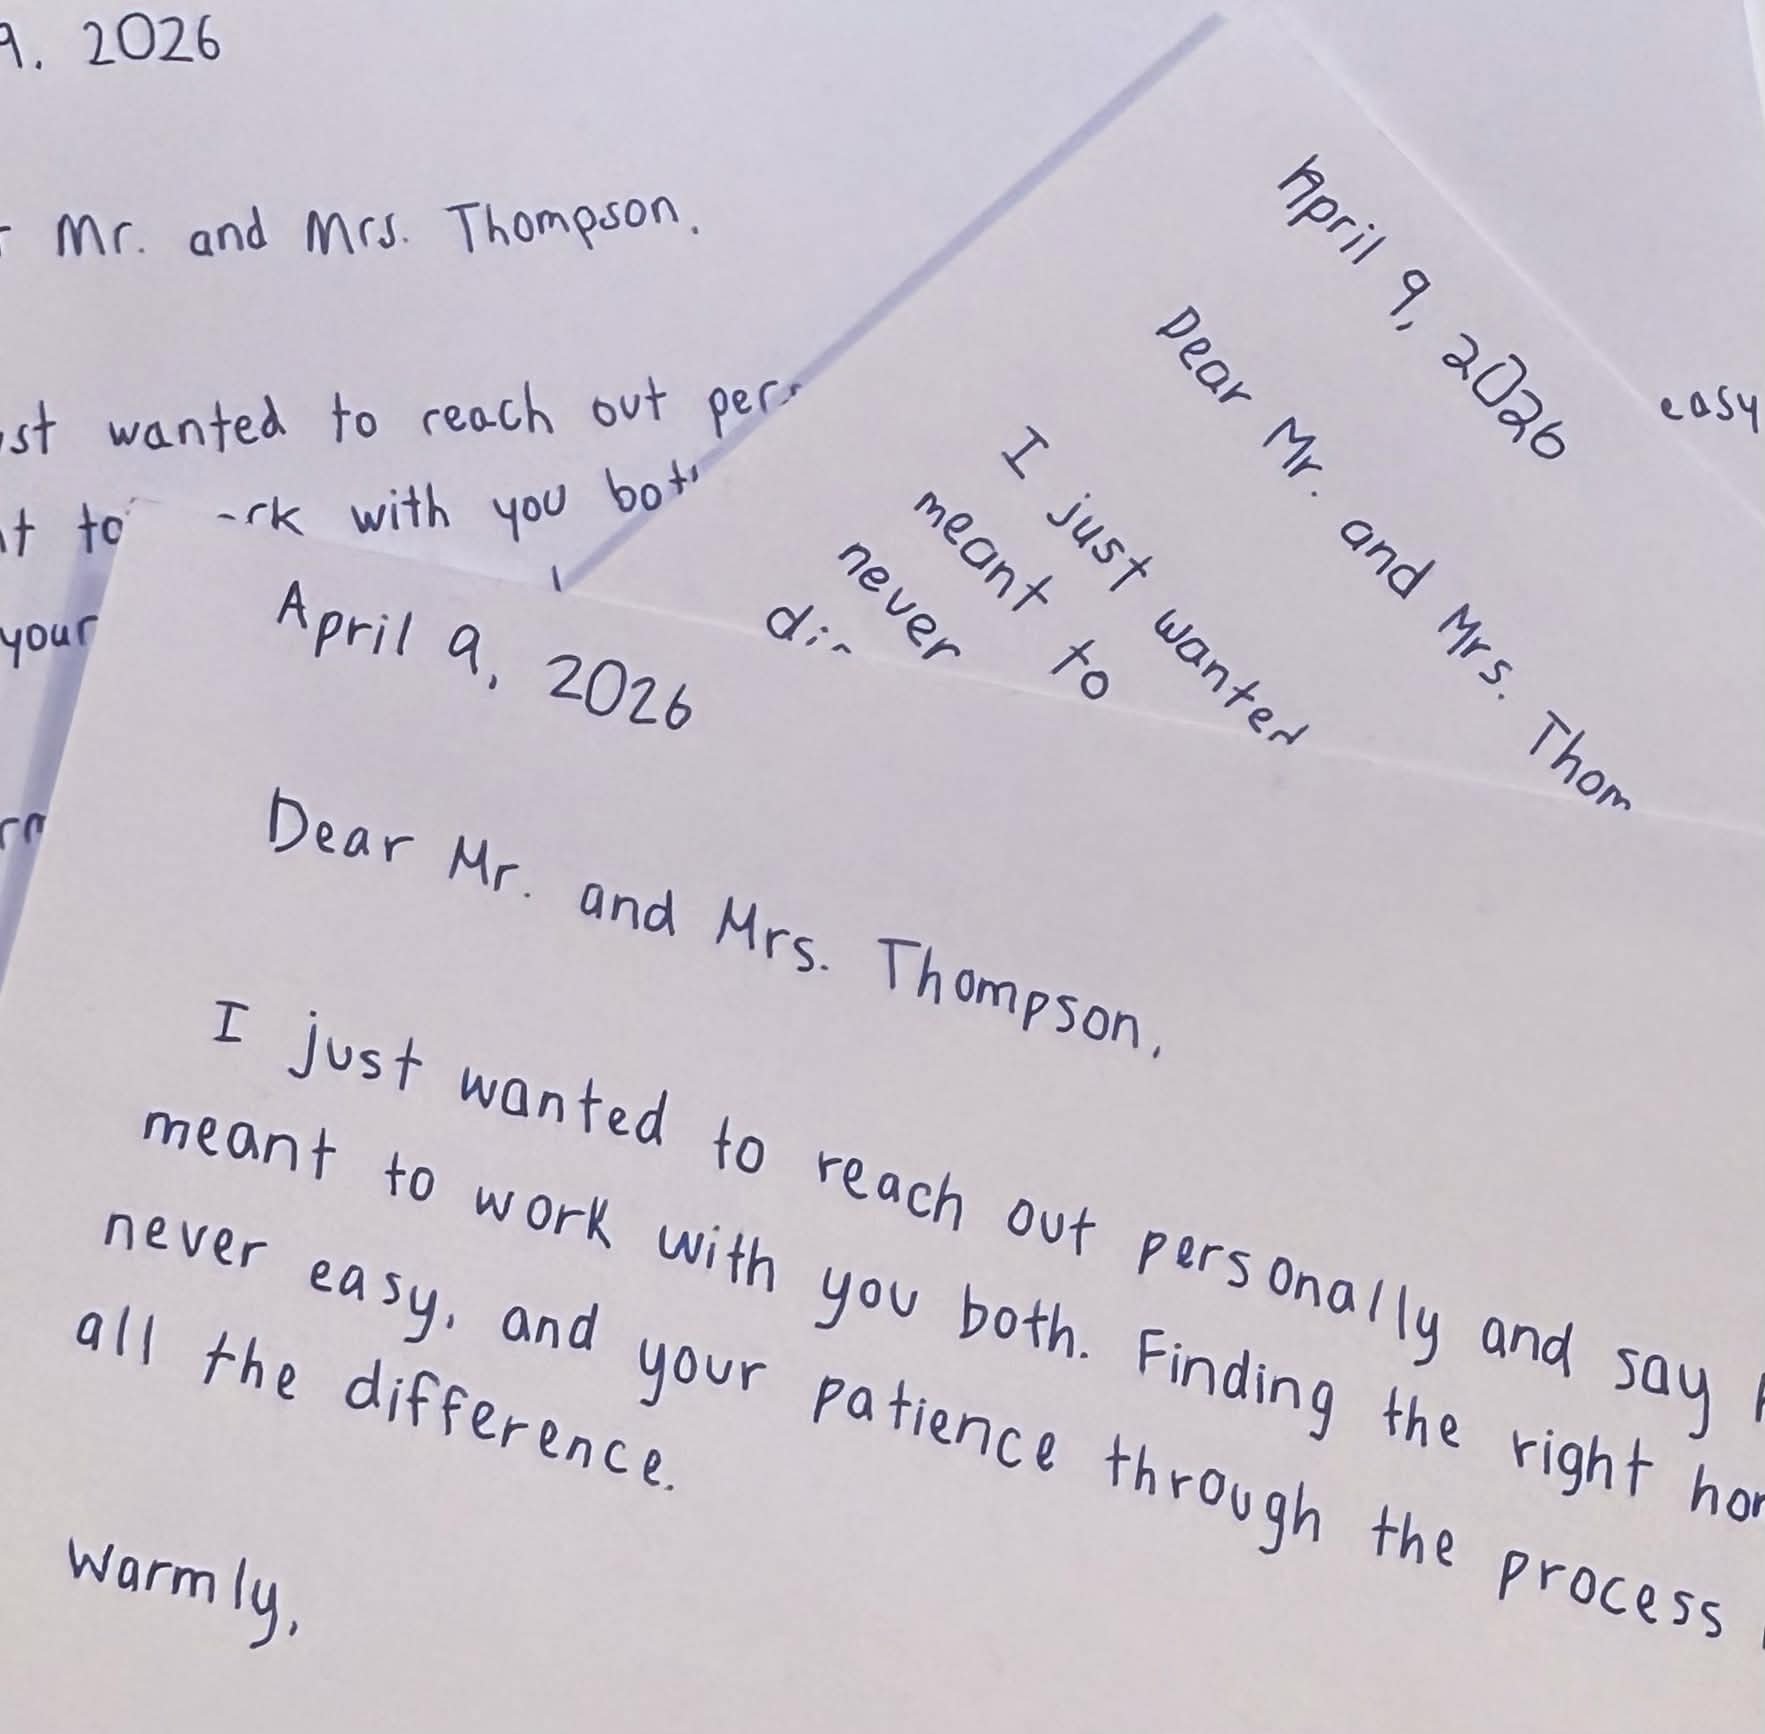 9. 2026
Mr. and Mrs. Thompson.
wanted to reach out
with you
your
April 9, 2026
Dear Mr. and Mrs. Thom
I just wanted
meant to
never
easy
April 9, 2026
Dear Mr. and Mrs. Thompson,
I just wanted to reach out personally and say
meant to work with you both. Finding the right
never easy, and your patience through the process
all the difference.
Warmly,